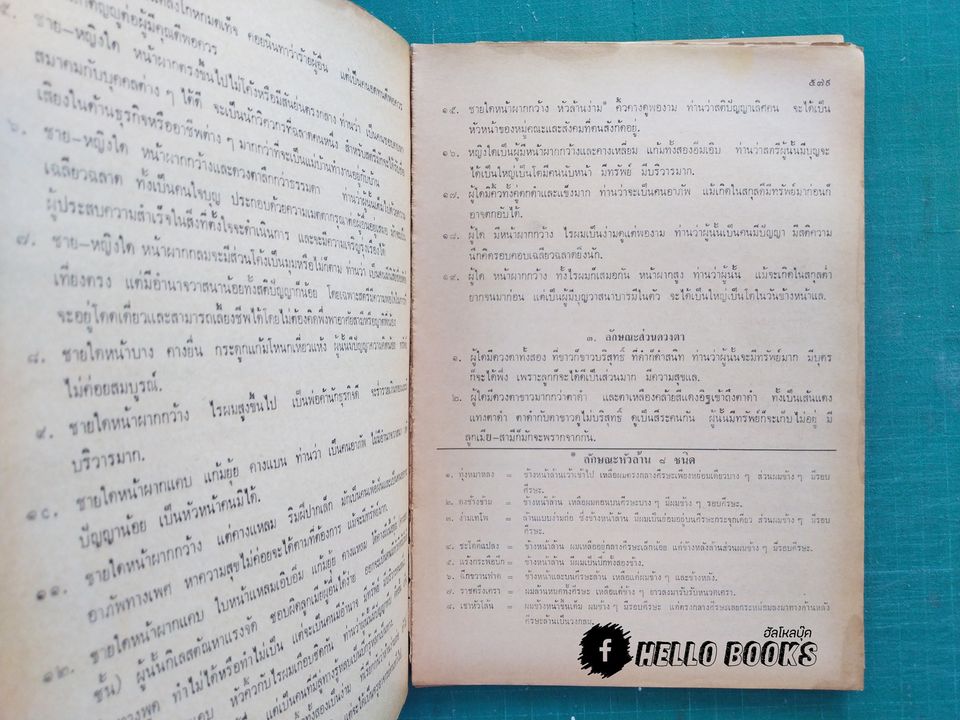 โกหกมดเท็จ คอยนินทาว่าร้ายผู้อื่น แต่เป็นคนอดทนดีพอควร
กตัญญูต่อผู้มีคุณดีพอควร
๕. ชาย–หญิงใด หน้าผากตรงขึ้นไปไม่โค้งหรือมีสันย่นตรงกลาง ท่านว่า เป็นคนชอบ
สมาคมกับบุคคลต่าง ๆ ได้ดี จะเป็นนักวิศวกรที่ฉลาดคนหนึ่ง สำหรับสตรี
เสียงในด้านธุรกิจหรืออาชีพต่าง ๆ มากกว่าที่จะเป็นแม่บ้านทำงานอยู่กับบ้าน
๖. ชาย–หญิงใด หน้าผากกว้างและดวงตาลึกกว่าธรรมดา ท่านว่าผู้นั้น
เฉลียวฉลาด ทั้งเป็นคนใจบุญ ประกอบด้วยความเมตตากรุณาต่อผู้อื่น
ผู้ประสบความสำเร็จในสิ่งที่ตั้งใจจะดำเนินการ และจะมีความเจริญรุ่งเรือง
๗. ชาย–หญิงใด หน้าผากกลมจะมีส่วนโค้งเป็นมุมหรือไม่ก็ตาม ท่านว่า เป็นคน
เที่ยงตรง แต่มีอำนาจวาสนาน้อยทั้งสติปัญญาก็น้อย โดยเฉพาะสตรี
จะอยู่โดดเดี่ยวและสามารถเลี้ยงชีพได้โดยไม่ต้องคิดพึ่งพาอาศัยสามีหรือญาติพี่น้อง
๘. ชายใดหน้าบาง คางยื่น กระดูกแก้มโหนกเหี่ยวแห้ง ผู้นั้นมีปัญญา
ไม่ค่อยสมบูรณ์.
๙. ชายใดหน้าผากกว้าง ไรผมสูงขึ้นไป เป็นพ่อค้านักธุรกิจดี จะร่ำรวย
บริวารมาก.
๑๐. ชายใดหน้าผากแคบ แก้มยุ้ย คางแบน ท่านว่า เป็นคนอาภัพ ไม่มีอำนาจวาสนา
ปัญญาน้อย เป็นหัวหน้าคนมิได้.
๑๑. ชายใดหน้าผากกว้าง แต่คางแหลม ริมฝีปากเล็ก มักเป็นคน
อาภัพทางเพศ หาความสุขไม่ค่อยจะได้ตามที่ต้องการ แม้จะมีทรัพย์มาก.
๑๒. ชายใดหน้าผากแคบ ใบหน้าแหลมเอิบอิ่ม แก้มยุ้ย คางแหลม
ชั้น) ผู้นั้นกิเลสตัณหาแรงจัด ชอบผิดลูกเมียผู้อื่นได้ง่าย
พูด ทำไม่ได้หรือทำไม่เป็น แต่จะเป็นคนมีอำนาจ
แคบ หัวคิ้วกับไรผมเกือบชิดกัน
๕๗๙
๑๕. ชายใดหน้าผากกว้าง หัวล้านง่าม* คิ้วคางดูพองาม ท่านว่าสติปัญญาเลิศคน จะได้เป็น
หัวหน้าของหมู่คณะและสังคมที่ตนสังกัดอยู่.
๑๖. หญิงใดเป็นผู้มีหน้าผากกว้างและคางเหลี่ยม แก้มทั้งสองอิ่มเอิบ ท่านว่าสตรีผู้นั้นมีบุญจะ
ได้เป็นใหญ่เป็นโตมีคนนับหน้า มีทรัพย์ มีบริวารมาก.
๑๗. ผู้ใดมีคิ้วทั้งคู่ดกดำและแข็งมาก ท่านว่าจะเป็นคนอาภัพ แม้เกิดในสกุลดีมีทรัพย์มาก่อนก็
อาจตกอับได้.
๑๘. ผู้ใด มีหน้าผากกว้าง ไรผมเป็นง่ามดูแต่พองาม ท่านว่าผู้นั้นเป็นคนมีปัญญา มีสติความ
นึกคิดรอบคอบเฉลียวฉลาดยิ่งนัก.
๑๙. ผู้ใด หน้าผากกว้าง ทั้งไรผมก็เสมอกัน หน้าผากสูง ท่านว่าผู้นั้น แม้จะเกิดในสกุลต่ำ
ยากจนมาก่อน แต่เป็นผู้มีบุญวาสนาบารมีในตัว จะได้เป็นใหญ่เป็นโตในวันข้างหน้าแล.
๓. ลักษณะส่วนดวงตา
๑. ผู้ใดมีดวงตาทั้งสอง ที่ขาวก็ขาวบริสุทธิ์ ที่ดำก็ดำสนิท ท่านว่าผู้นั้นจะมีทรัพย์มาก มีบุตร
ก็จะได้พึ่ง เพราะลูกก็จะได้ดีเป็นส่วนมาก มีความสุขแล.
๒. ผู้ใดมีดวงตาขาวมากกว่าตาดำ และตาเหลืองคล้ายสีแดงอิฐเข้าถึงตาดำ ทั้งเป็นเส้นแดง
แทงตาดำ ตาดำกับตาขาวดูไม่บริสุทธิ์ ดูเป็นสีระคนกัน ผู้นั้นมีทรัพย์ก็จะเก็บไม่อยู่ มี
ลูกเมีย–สามีก็มักจะพรากจากกัน.
* ลักษณะหัวล้าน ๘ ชนิด
๑. ทุ่งหมาหลง = ข้างหน้าล้านเว้าเข้าไป เหลือผมตรงกลางศีรษะเพียงหย่อมเดียวบาง ๆ ส่วนผมข้าง ๆ มีรอบ
ศีรษะ.
๒. ดงช้างข้าม = ข้างหน้าล้าน เหลือผมตอนบนศีรษะบาง ๆ มีผมข้าง ๆ รอบศีรษะ.
๓. ง่ามเทโพ = ล้านแบบง่ามถ่อ ซึ่งข้างหน้าล้าน มีผมเป็นย่อมอยู่บนศีรษะกระจุกเดียว ส่วนผมข้าง ๆ มีรอบ
ศีรษะ.
๔. ชะโดตีแปลง = ข้างหน้าล้าน ผมเหลืออยู่กลางศีรษะเล็กน้อย แต่ข้างหลังล้านส่วนผมข้าง ๆ มีรอบศีรษะ.
๕. แร้งกระพือปีก = ข้างหน้าล้าน มีผมเป็นปีกทั้งสองข้าง.
๖. ฉีกขวานฟาด = ข้างหน้าและบนศีรษะล้าน เหลือแต่ผมข้าง ๆ และข้างหลัง.
๗. ราชคลึงเครา = ผมล้านหมดทั้งศีรษะ เหลือแต่ข้าง ๆ ยาวลงมารับกับหนวดเครา.
๘. เขาหัวโล้น = ผมข้างหน้าขึ้นเต็ม ผมข้าง ๆ มีรอบศีรษะ แต่ตรงกลางศีรษะเลยกระหม่อมลงมาทางด้านหลัง
ศีรษะล้านเป็นวงกลม.
ฮัลโหลบุ๊ค
f HELLO BOOKS